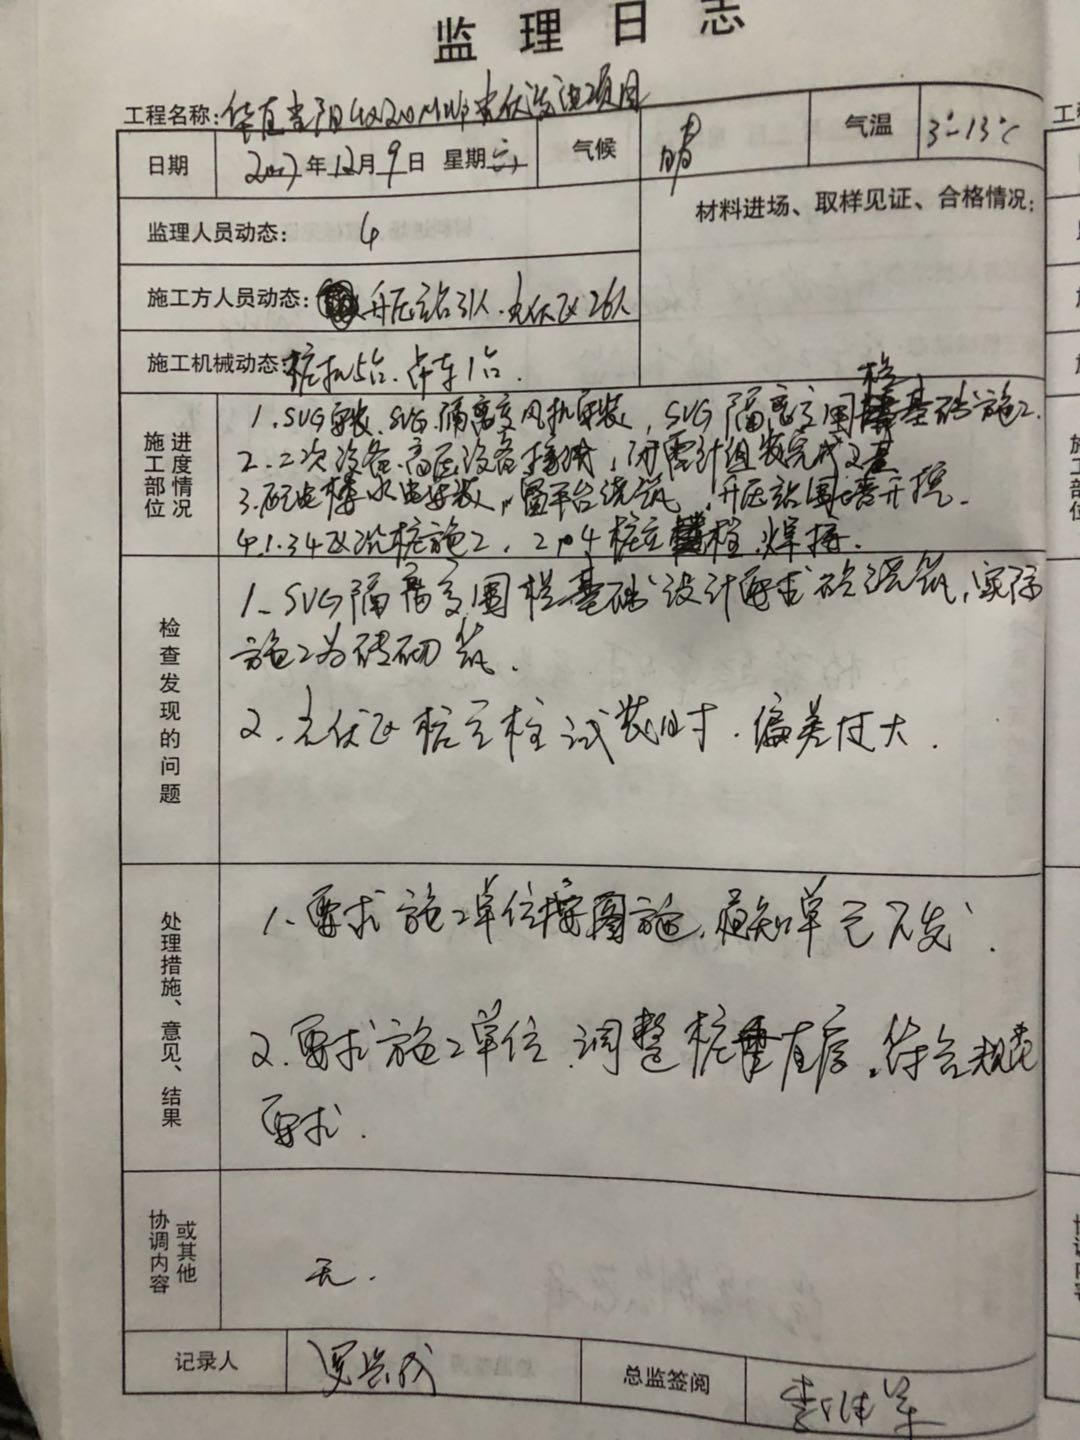 监理日志
工程名称: 20MWp光伏发电项目
日期 2017年12月9日 星期六 气候 晴 气温 3°-13°C
材料进场、取样见证、合格情况:
监理人员动态: 4
施工方人员动态: 升压站31人.光伏区26人
施工机械动态: 桩机5台.吊车1台.
施工部位 进度情况
1.SVG安装.SVG隔离变风机安装,SVG隔离变围栏基础施工.
2.二次设备.高压设备接线,避雷针组装完成
3.配电楼水电安装,平台浇筑,升压站围墙开挖.
4.1.3.4区沉桩施工.2 4桩立柱.焊接.
检查发现的问题
1、SVG隔离变围栏基础设计要求砼浇筑,实际
施工为砖砌筑.
2.光伏区桩立柱试装时.偏差过大.
处理措施、意见、结果
1、要求施工单位按图施,通知单已下发.
2.要求施工单位调整桩垂直度.符合规范
要求.
协调内容 或其他
无.
记录人 总监签阅